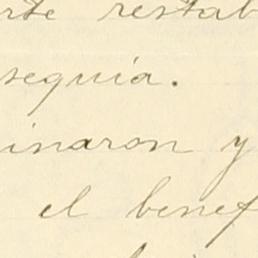 rte restab
sequía.
inaron y
el benef